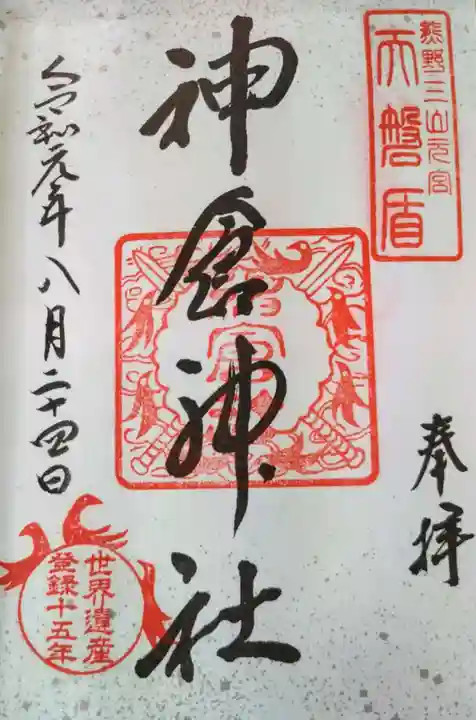 熊野三山元宮
天磐盾
奉拝
神倉神社
令和元年八月二十四日
世界遺産
登録十五年